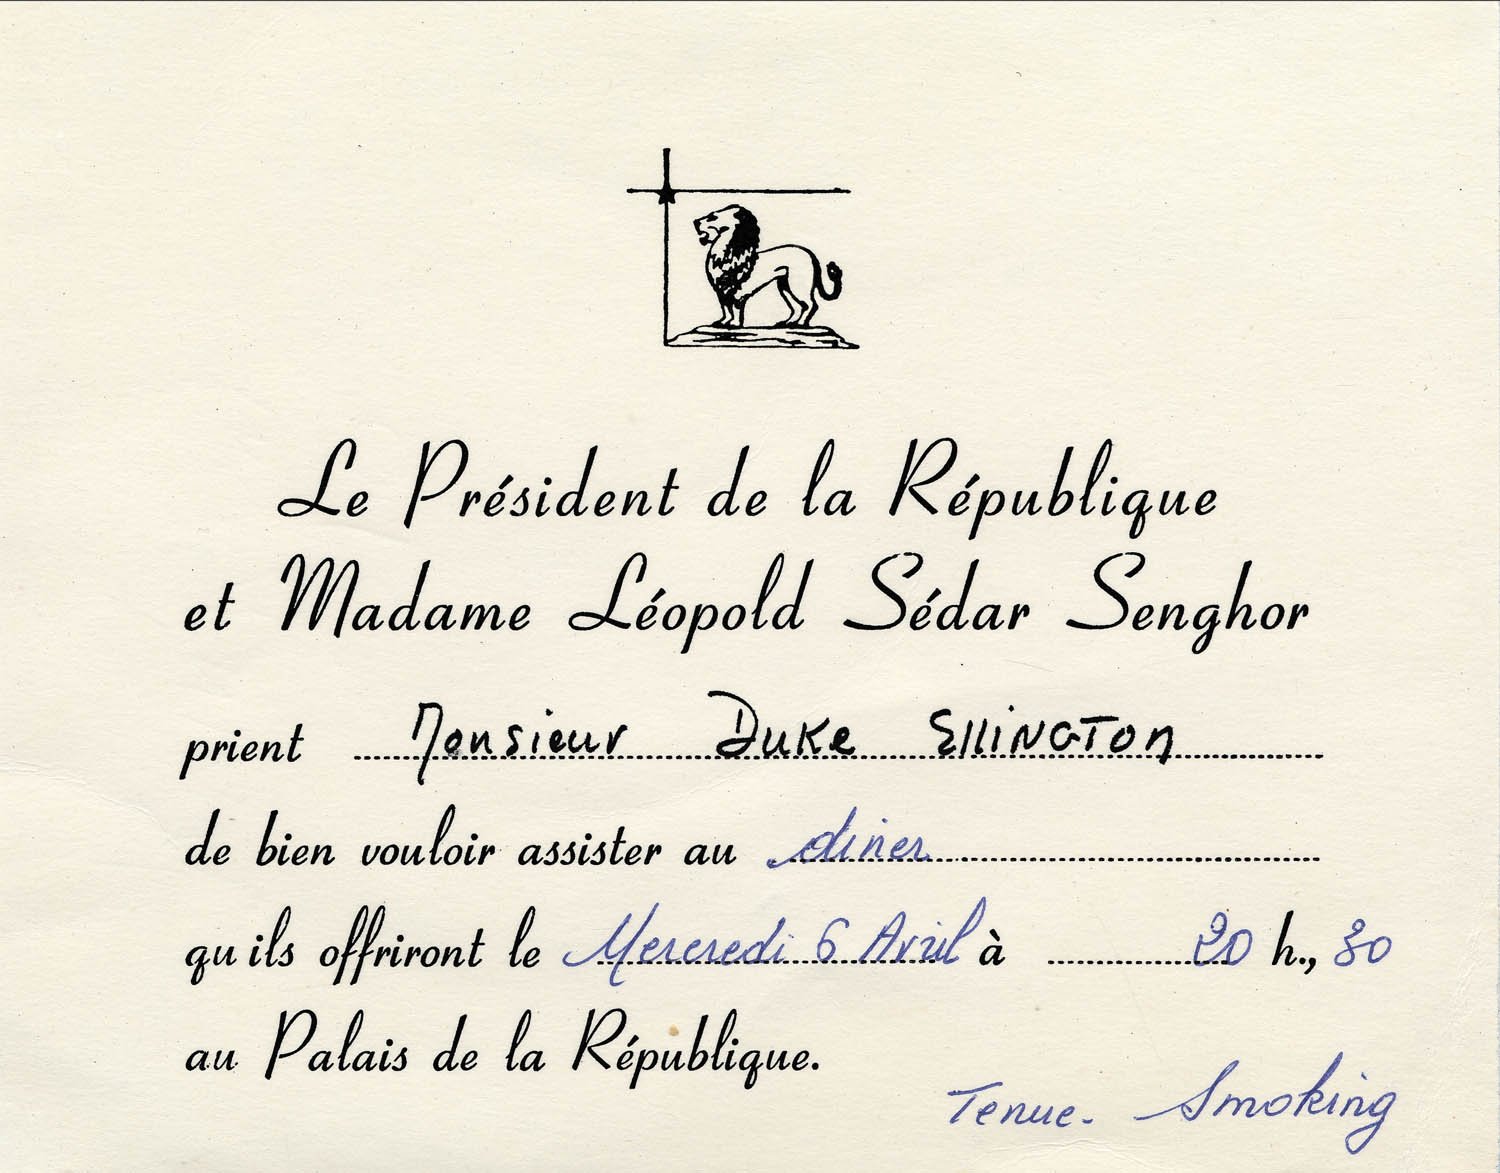 Le Président de la République
et Madame Léopold Sédar Senghor
prient Monsieur Duke Ellington
de bien vouloir assister au diner
qu ils offriront le Mercredi 6 Avril à 20 h., 30
au Palais de la République.
Tenue - Smoking